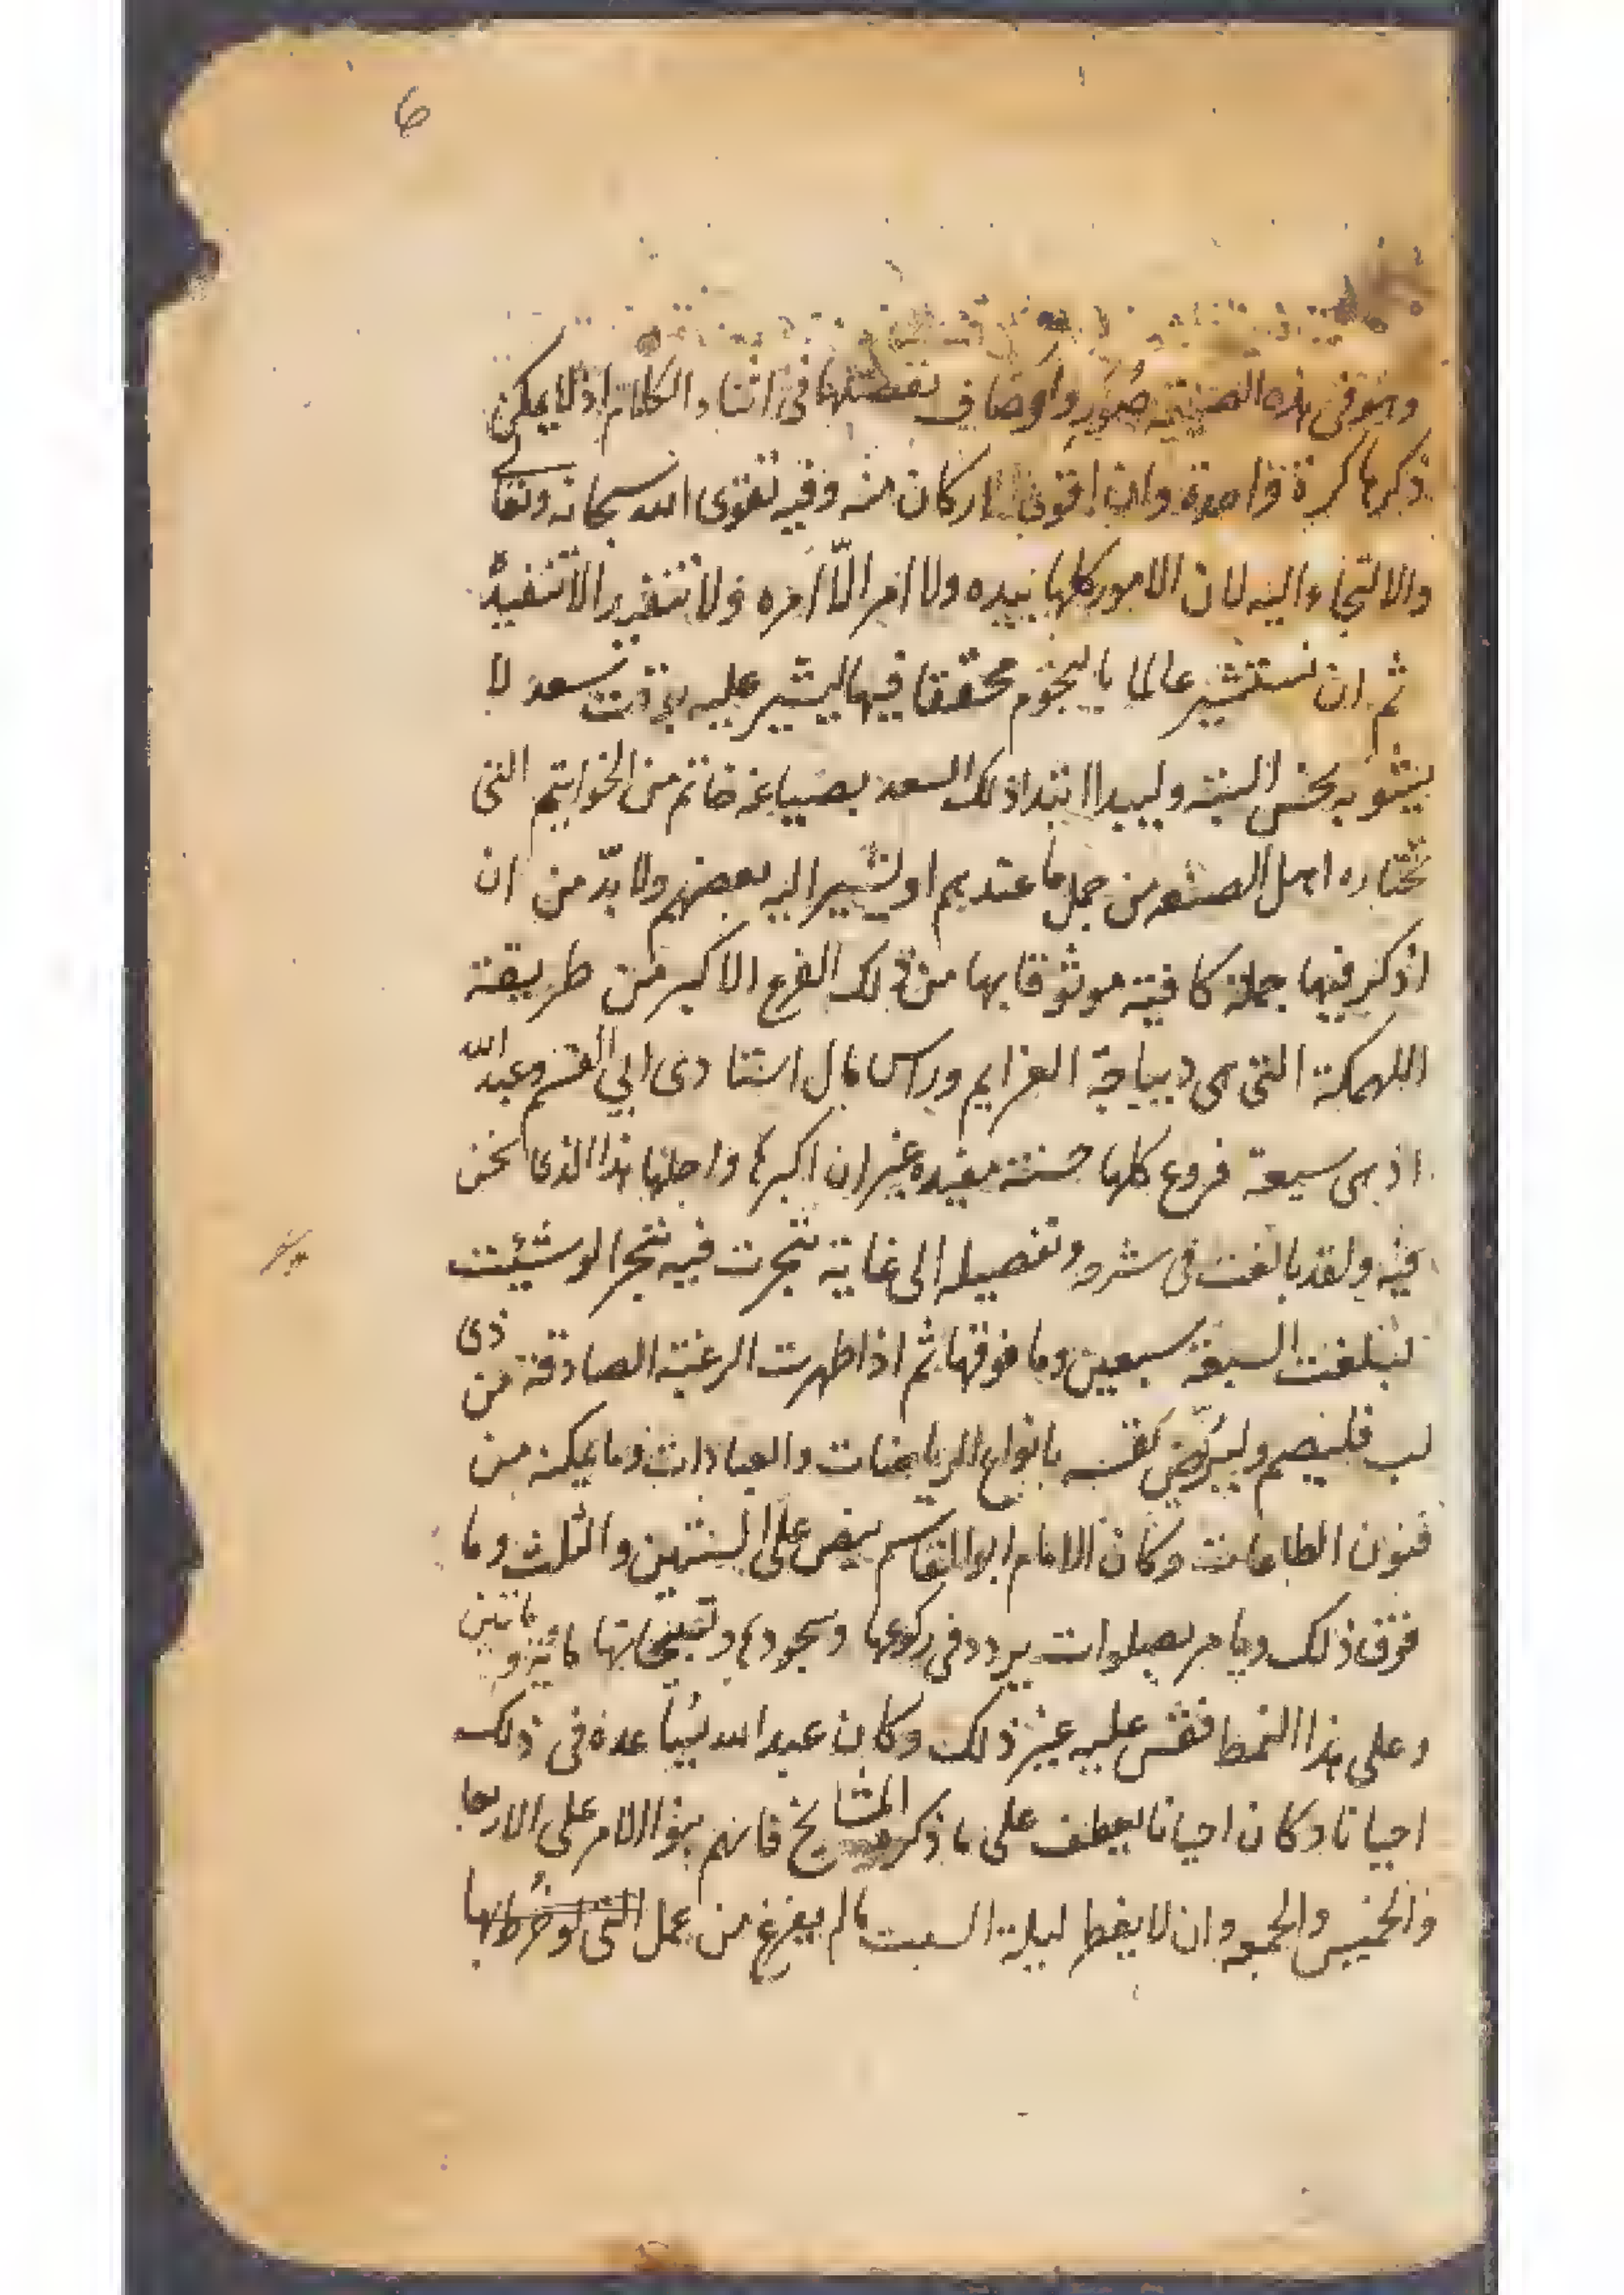 6
وهو في هذه الصنعة صور واوصاف نفصلها في اثناء الكلام اذ لا يمكن
ذكرها كرة واحدة وان اقوى الاركان منه وفيه تقوى الله سبحانه وتعالى
والالتجاء اليه لان الامور كلها بيده ولا امر الّا امره ولا تنفيذ الا تنفيذه
ثم ان تستشير عالما بالنجوم محققا فيها ليشير عليه بوقت سعد لا
يشوبه نحس البتة وليبدا ابتدا ذلك السعد بصياغة خاتم من الخواتيم التى
تختاره اهل الصنعه من جمل ما عندهم او يشير اليه بعضهم ولا بدّ من ان
اذكر فيها جملة كافية موثوقا بها من ذلك الفرع الاكبر من طريقة
اللهمكة التى هى ديباجة العزايم وراس مال استادى ابي القسم وعبد الله
اذ هى سبعة فروع كلها حسنة مفيده غير ان اكبرها واجلها هذا الذى نحن
فيه ولقد بالغت فى شرحه وتفصيله الى غاية تبحرت فيه تبحرا لو شئت
لبلغت السبعة سبعين وما فوقها ثم اذا ظهرت الرغبة الصادقة من ذى
لب فليصم وليروّض نفسه بانواع الرياضات والعبادات وما يمكنه من
فنون الطاعات وكان الامام ابو القاسم ينص على السنتين والثلث وما
فوق ذلك ويامر بصلوات يردد فى ركوعها وسجودها وتسبيحاتها مائة ومائتين
وعلى هذا النمط فقس عليه غير ذلك وكان عبد الله يساعده فى ذلك
احيانا وكان احيانا يعطف على ما ذكره المشايخ فانهم بنوا الامر على الاربعا
والخميس والجمعه وان لا يفطر ليلة السبت ما لم يفرغ من عمل التى لوح بها